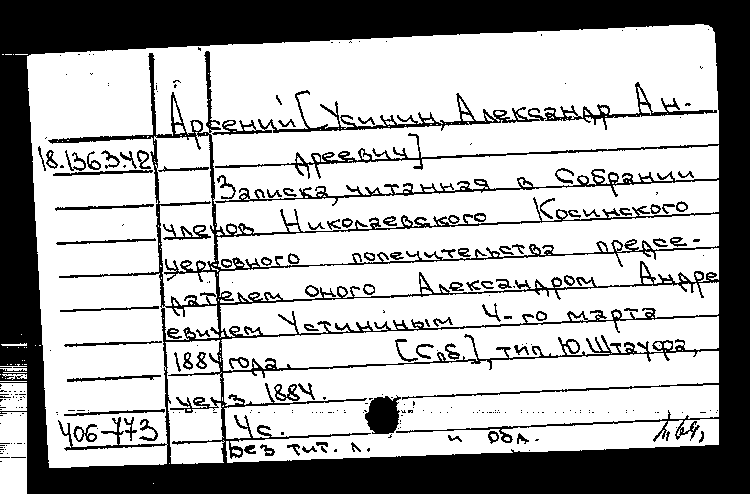 Арсений [Усинин, Александр Ан-
18.136.342 дреевич]
Записка, читанная в Собрании
членов Николаевского Косинского
церковного попечительства предсе-
дателем оного Александром Андре
евичем Устининым 4-го марта
1884 года. [Спб.], тип. Ю. Штауфа,
ценз. 1884.
406-773 4 с.
Без тит. л. и обл.